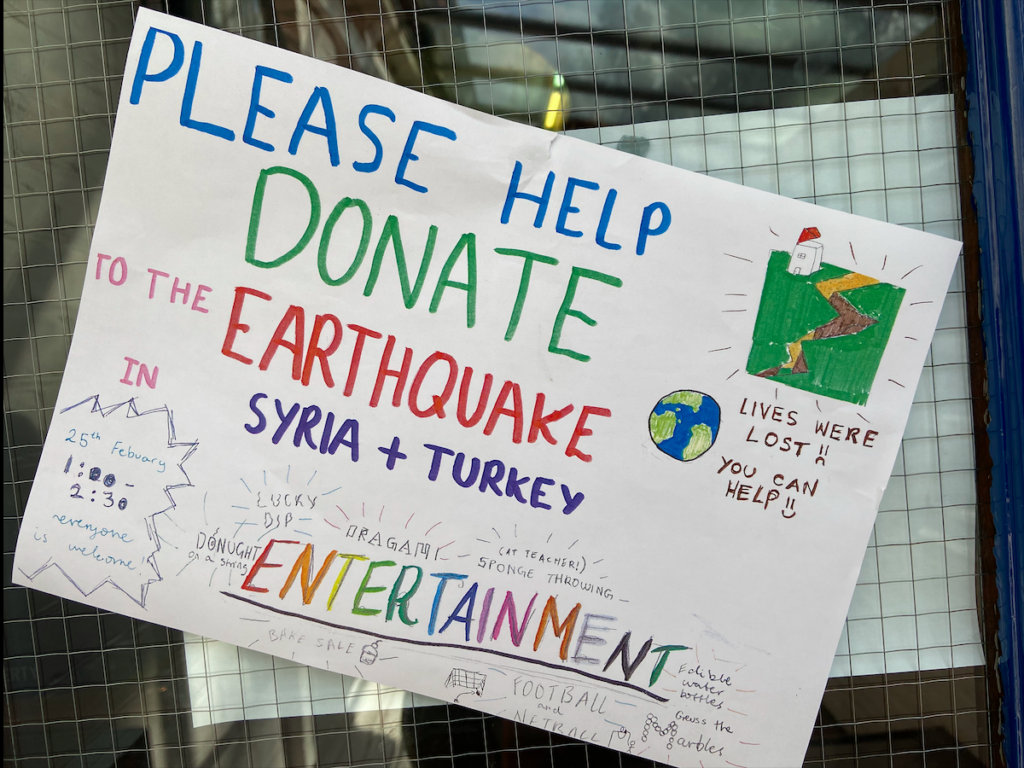 PLEASE HELP
DONATE
TO THE EARTHQUAKE
IN
SYRIA + TURKEY
LIVES WERE
LOST!!
YOU CAN
HELP!!
25th Febuary
1:00 -
2:30
everyone
is welcome!
LUCKY
DIP
DONUGHT
on a string
ORAGAMI
(AT TEACHER!)
SPONGE THROWING
ENTERTAINMENT
BAKE SALE
FOOTBALL
and
NETBALL
Edible
water
bottles
Geuss the
arbles